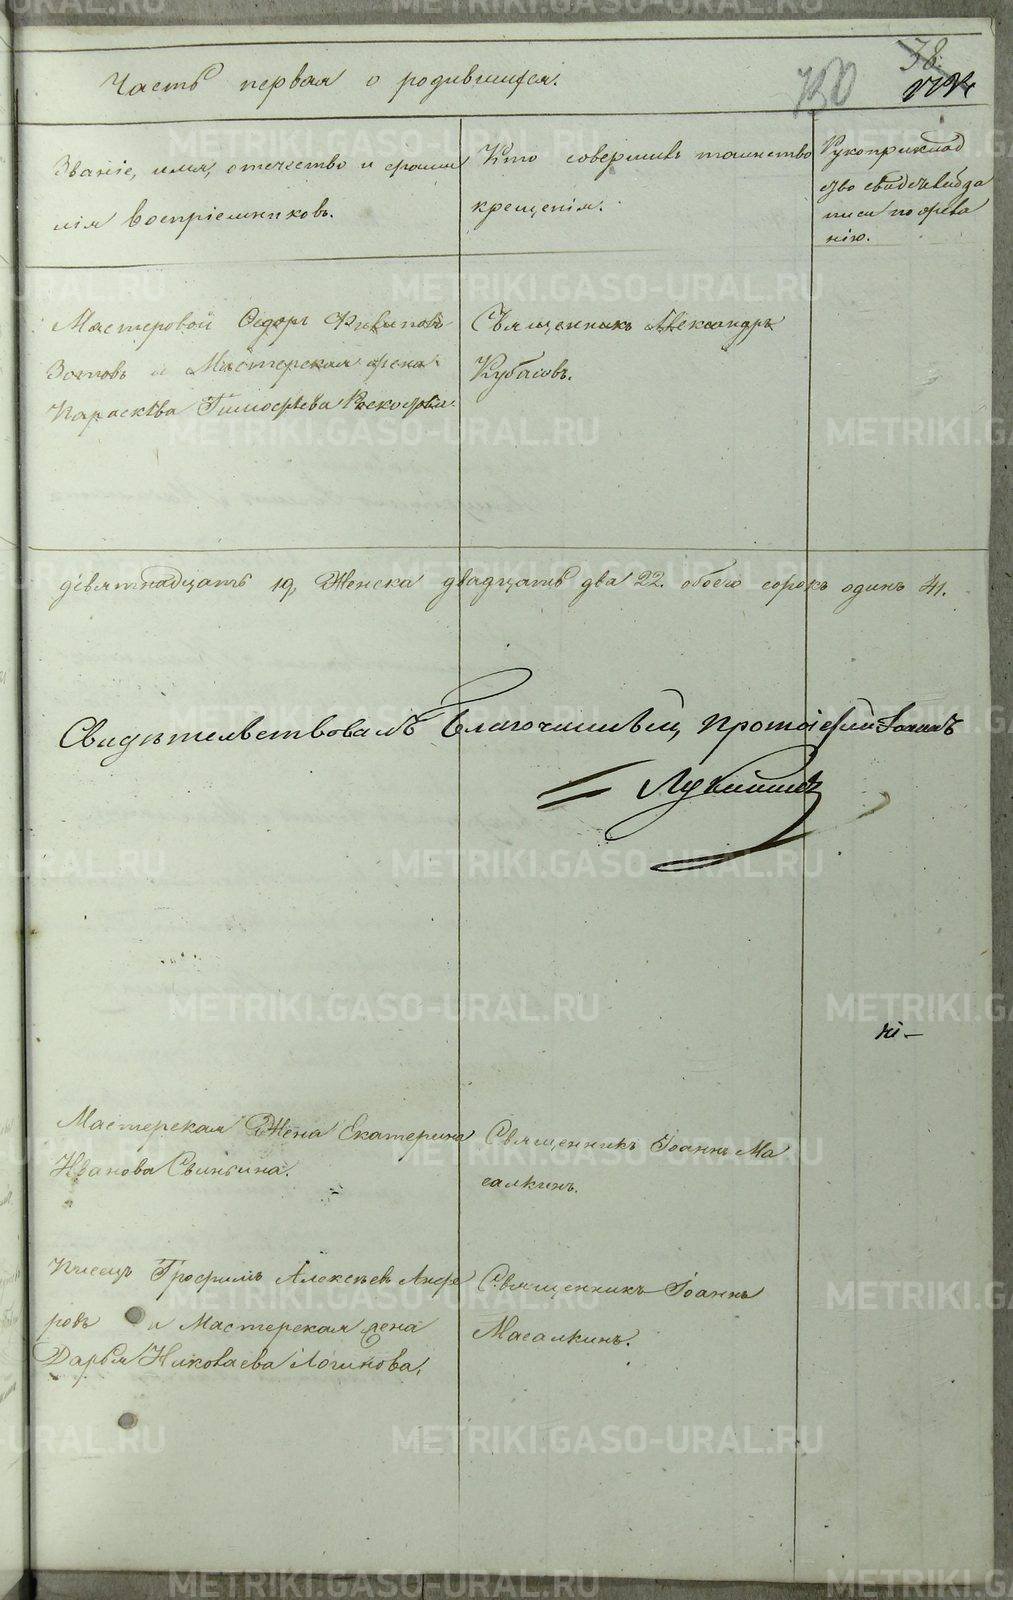 Часть первая о родившихся.
38.
Званіе, имя, отечество и фами
лія воспріемниковъ.
Кто совершивъ таинство
крещенія.
Рукоприклад
ство свидѣ
писи по жела
нію.
Мастеровой Ѳедоръ Филиповъ
Зотовъ и Мастерская жена
Параскева Тимофѣева
Священникъ Александръ
Кубасовъ.
девятнадцать 19, Женска двадцать два 22. обоего сорокъ одинъ 41.
Свидѣтельствовалъ Благочинный, Протоіерей Іоаннъ
Мастерская Жена Екатерина
Иванова Свинкина.
Священникъ Іоаннъ Ма
салкинъ.
Писецъ Трофимъ Алексѣевъ Анфе
ровъ и Мастерская жена
Дарья Николаева Логинова.
Священникъ Іоаннъ
Масалкинъ.
METRIKI.GASO-URAL.RU